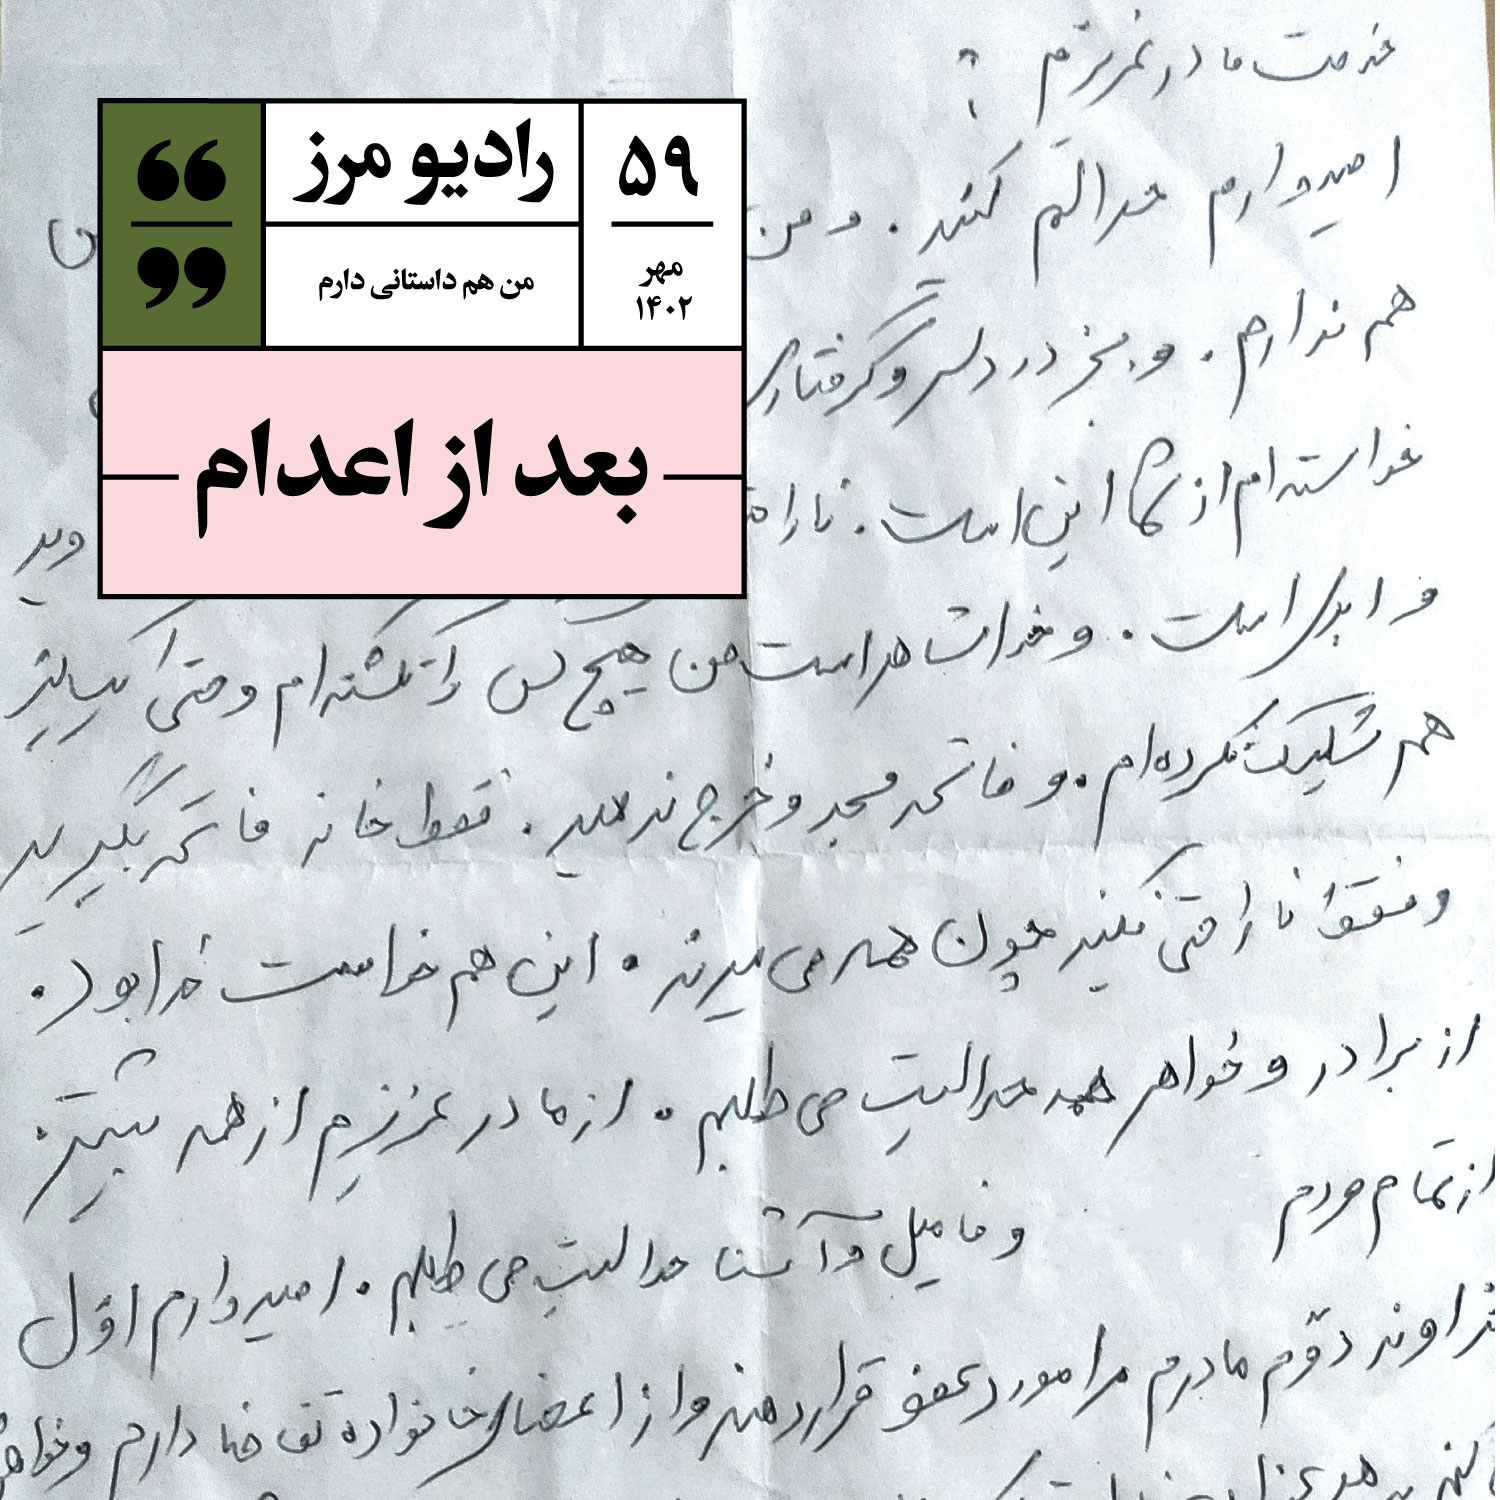 خدمت مادر عزیزم ؟
رادیو مرز
۵۹
من هم داستانی دارم
مهر
۱۴۰۲
بعد از اعدام
امیدوارم حلالم کنید . و من
هم ندارم . و بجز دردسر و گرفتاری
خواسته ام از شما این است . نارا
و ابدی است . و خدا شاهد است من هیچ کس را نکشته ام و حتی یک تیر
هم شلیک نکرده ام . و فاتحه مسجد و خرج ندهید . فقط خانه فاتحه بگیرید
و فقط ناراحتی نکنید چون همه می میرند . این هم خواست خدا بود .
از برادر و خواهر همه حلالیت می طلبم . از مادر عزیزم از همه بیشتر .
از تمام مردم و فامیل و آشنا حلالیت می طلبم . امیدوارم اول
خداوند دوم مادرم مرا مورد عفو قرار دهند و از اعضای خانواده تقاضا دارم و